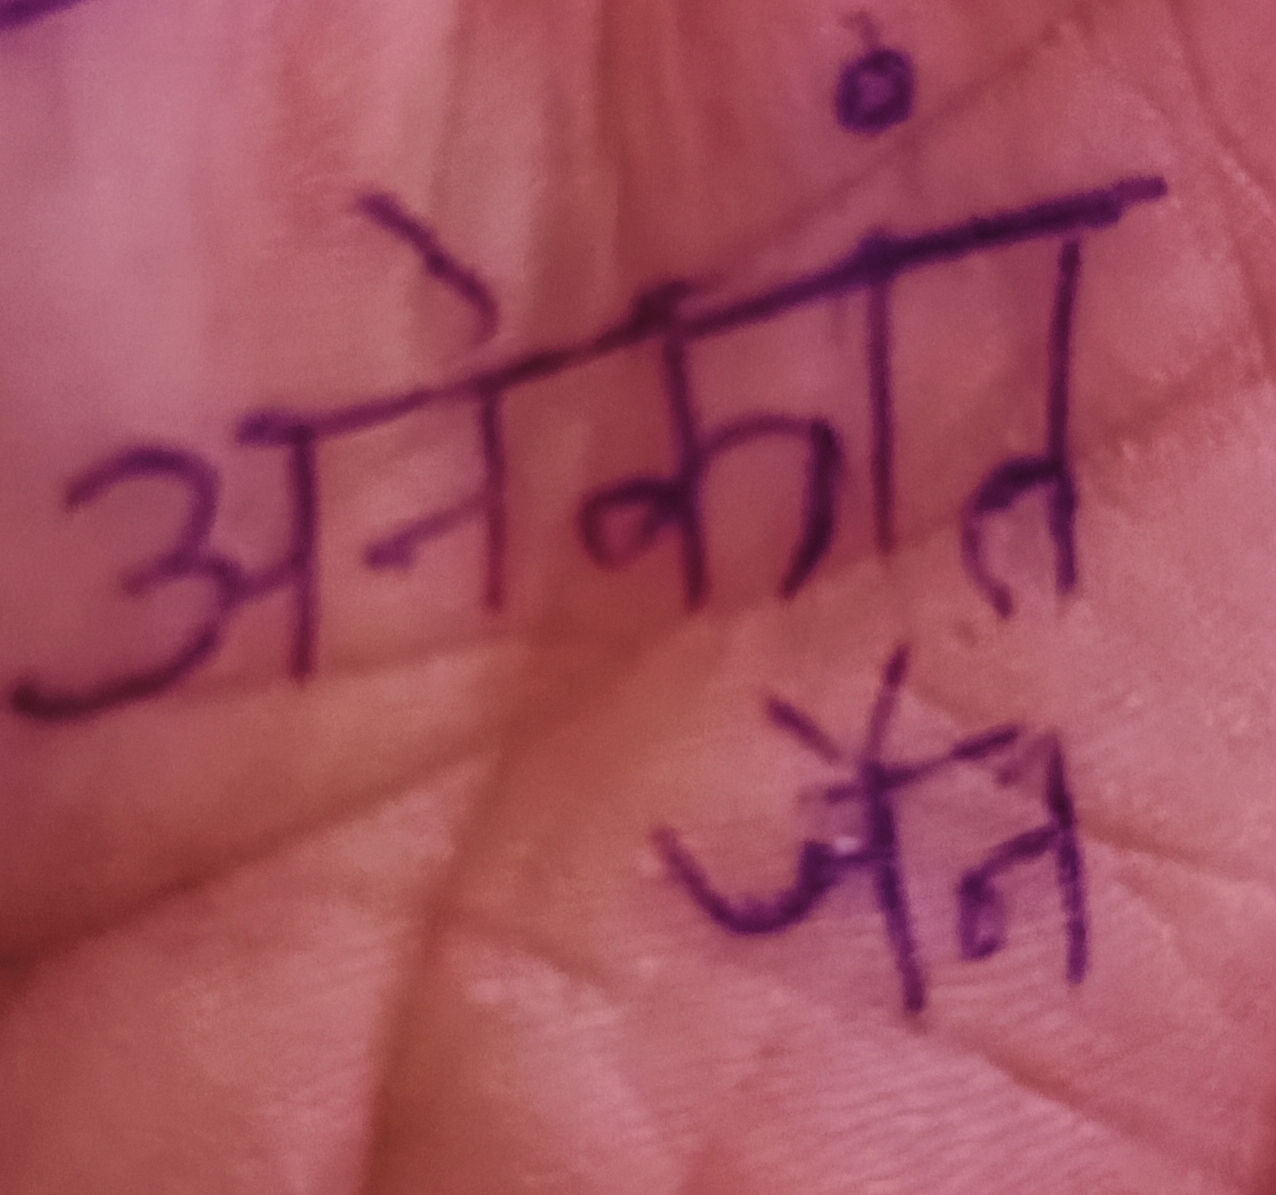 अनेकांत
जैन